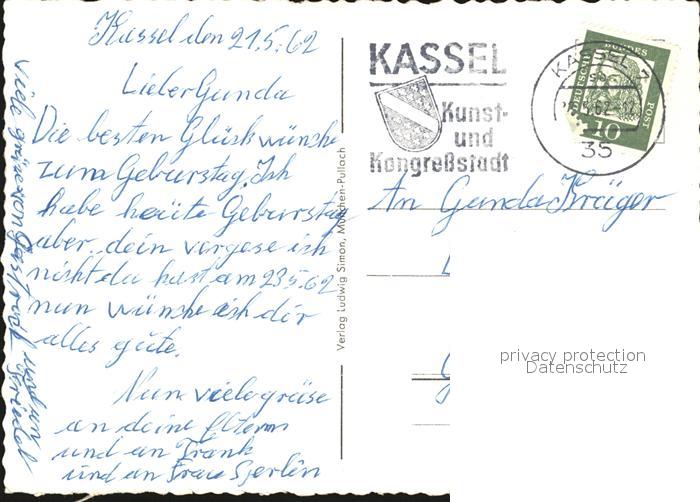 Kassel den 21.5.62
Lieber Gunda
Die besten Glückwünsche
zum Geburstag. Ich
habe heute Geburstag
aber dein vergese ich
nicht du hast am 23.5.62
nun wünsche ich dir
alles gute.
Nun viele grüse
an deine Eltern
und an Frank
und an Frau
viele grüse von
und an
Verlag Ludwig Simon, München-Pullach
KASSEL
Kunst-
und
Kongreßstadt
KASSEL 7
35
DEUTSCHE BUNDESPOST
10
An Gunda Krüger
privacy protection
Datenschutz